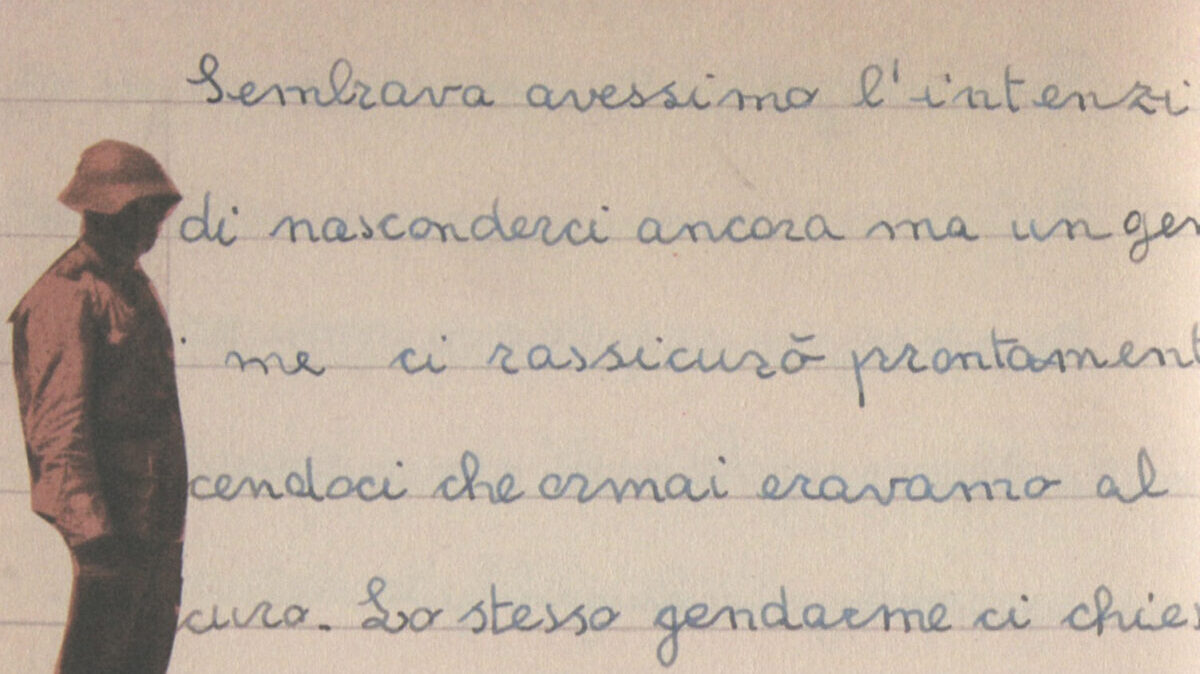 Sembrava avessimo l'intenzi
di nasconderci ancora ma un gen
me ci rassicurò prontament
cendoci che ormai eravamo al
curo. Lo stesso gendarme ci chies